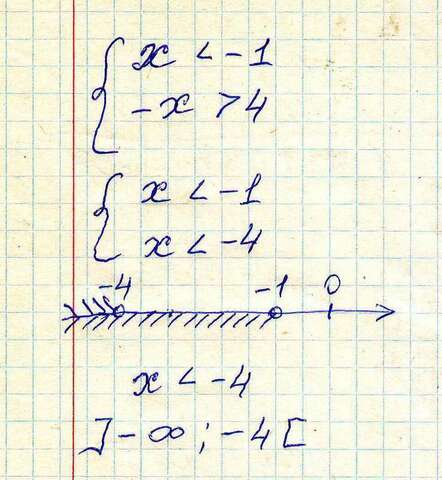 { x < -1
-x > 4
{ x < -1
x < -4
-4 -1 0
x < -4
]-∞; -4[